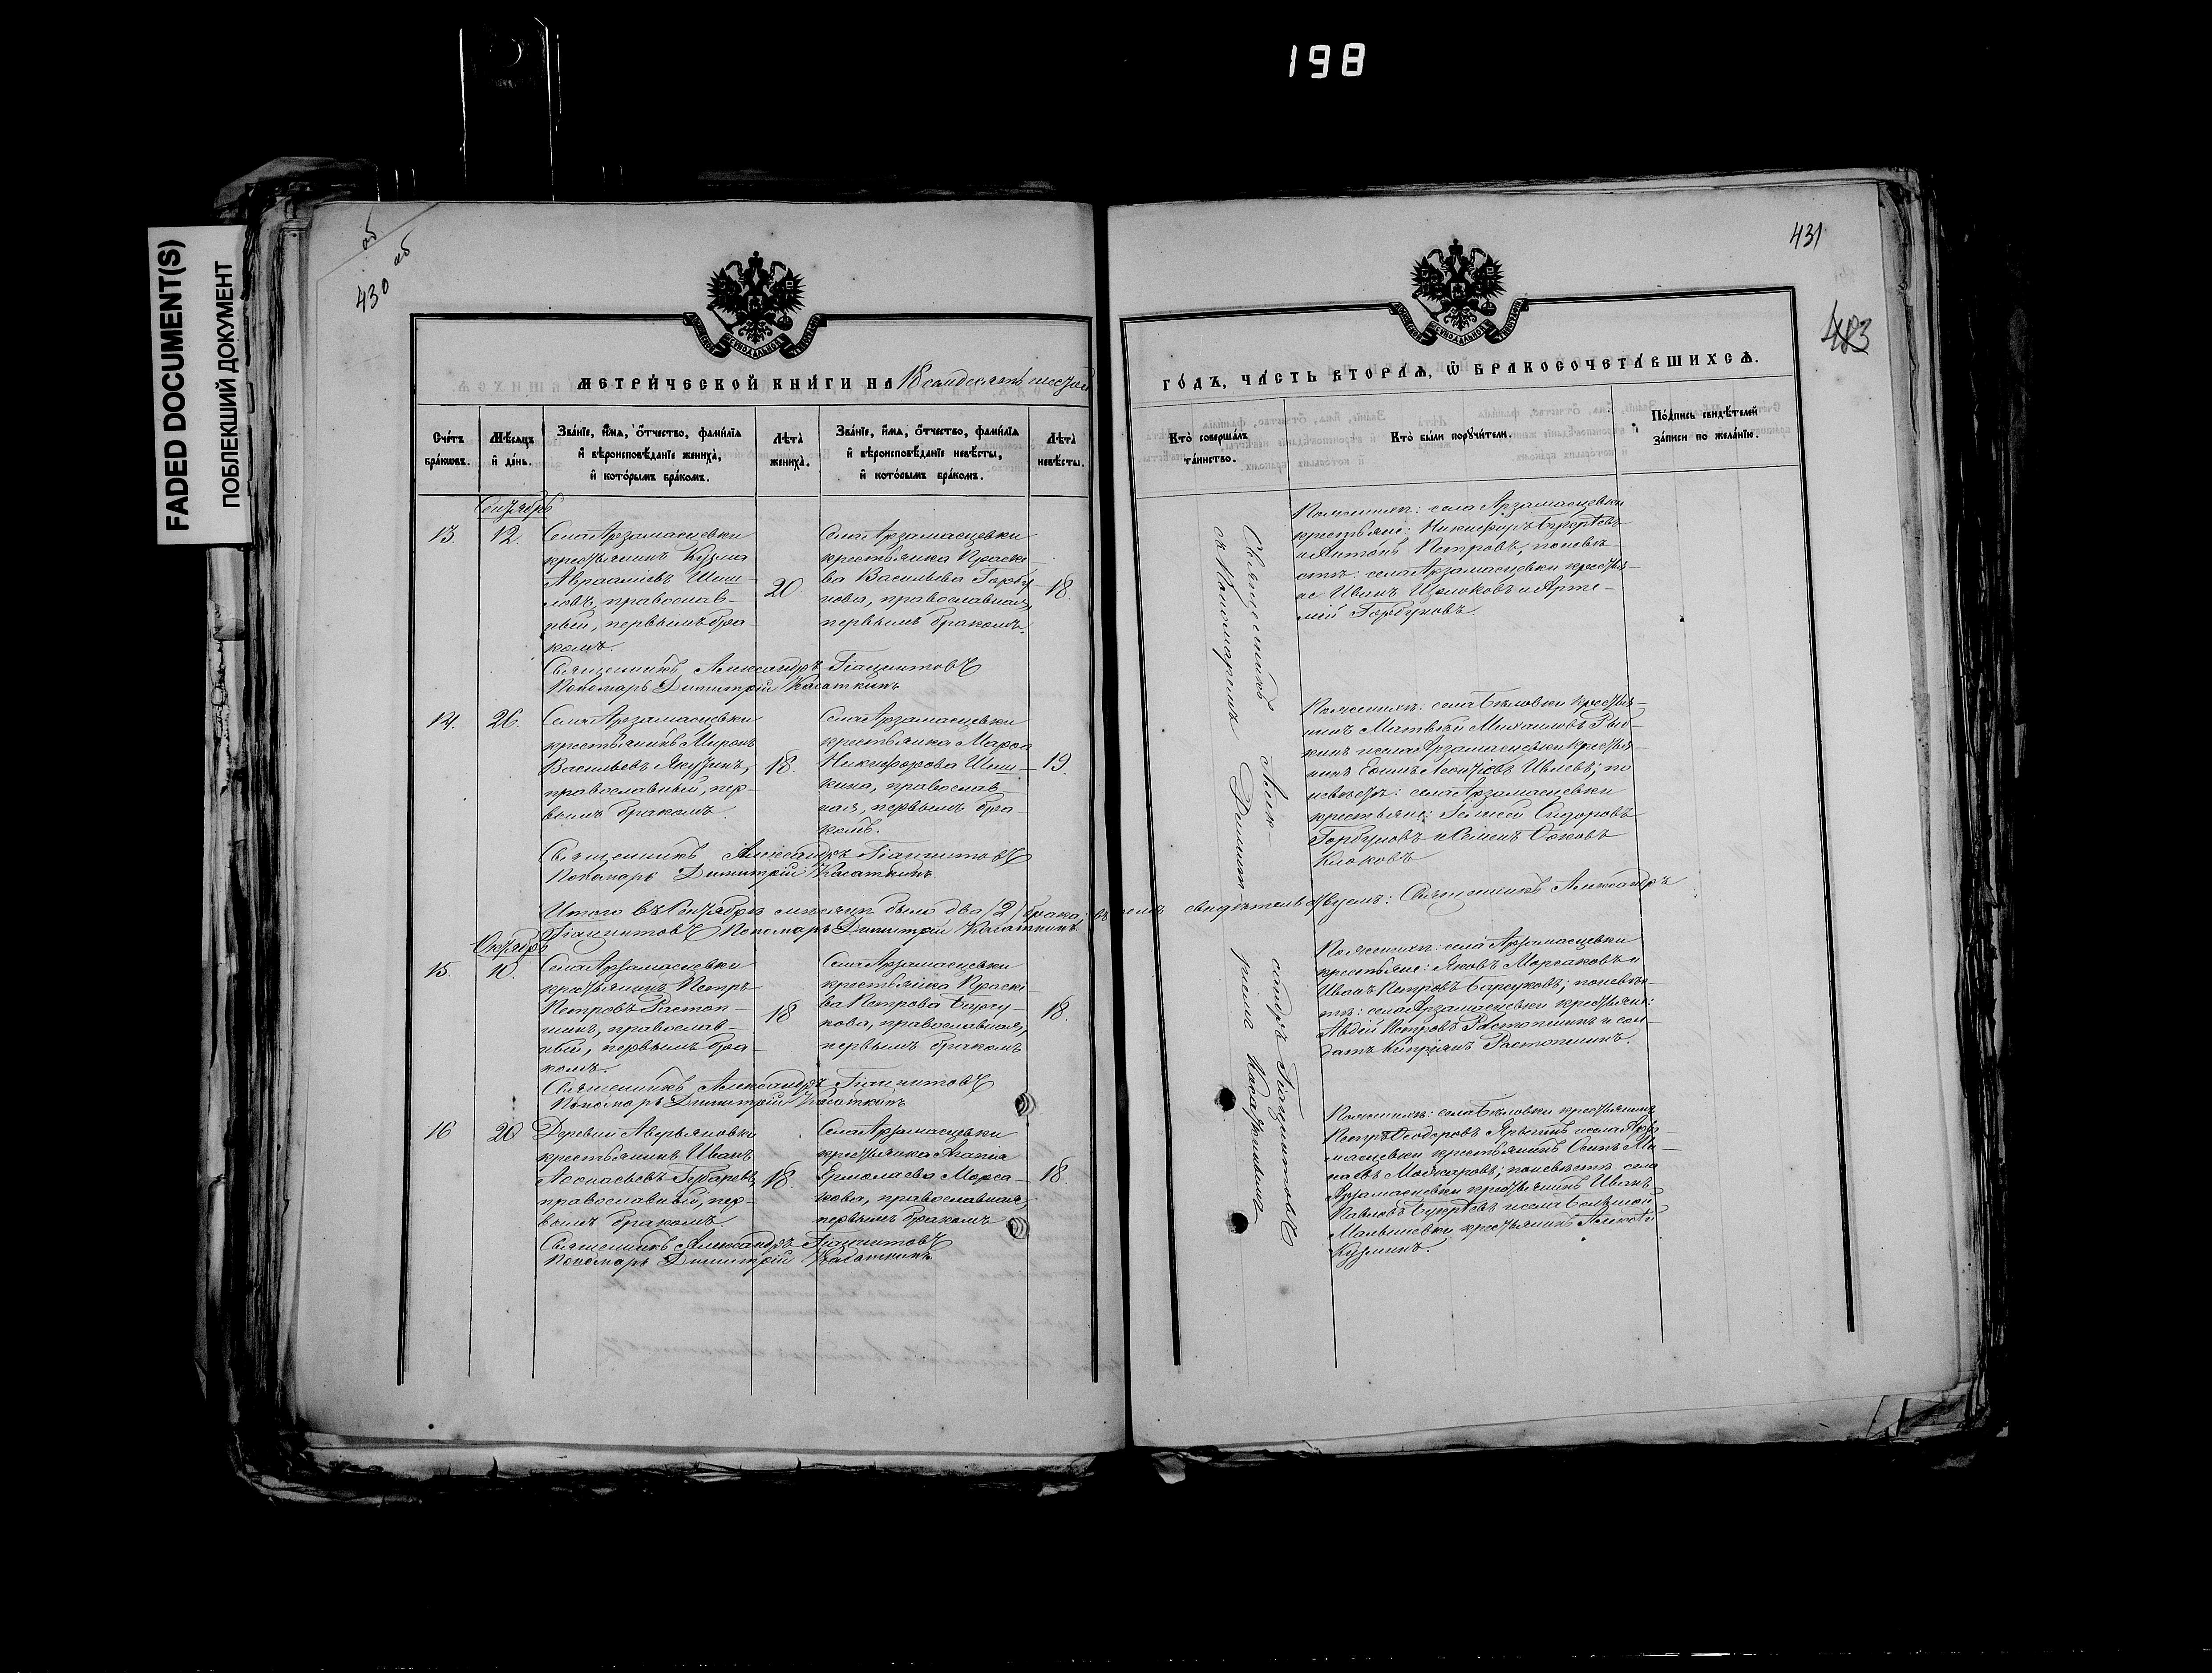 198
FADED DOCUMENT(S)
ПОБЛЕКШИЙ ДОКУМЕНТ
об
430 об
МЕТРИ́ЧЕСКОЙ КНИ́ГИ НА 18 семдесятъ шестой
Сче́тъ бра́кѡвъ.
Мѣ́сѧцъ и҆ де́нь.
Зва́нїе, и҆́мѧ, ѻ҆́тчество, фами́лїѧ
и҆ вѣроисповѣ́данїе жениха̀,
и҆ кото́рымъ бра́комъ.
Лѣ́та жениха̀.
Зва́нїе, и҆́мѧ, ѻ҆́тчество, фами́лїѧ
и҆ вѣроисповѣ́данїе невѣ́сты,
и҆ кото́рымъ бра́комъ.
Лѣ́та невѣ́сты.
Сентябрь
13. 12.
Села Арзамасцевки
крестьянинъ Кузма
Авраамiевъ Шиш-
ловъ, православ-
ный, первымъ бра-
комъ.
20.
Села Арзамасцевки
крестьянка Праске-
ва Васильева Горбу-
нова, православная,
первымъ бракомъ.
18.
Священникъ Александръ Гiацинтовъ
Пономарь Димитрiй Касаткинъ
14. 26.
Села Арзамасцевки
крестьянинъ Миронъ
Васильевъ Якунинъ,
православный, пер-
вымъ бракомъ.
18.
Села Арзамасцевки
крестьянка Марѳа
Никифорова Шиш-
кина, православ-
ная, первымъ бра-
комъ.
19.
Священникъ Александръ Гiацинтовъ
Пономарь Димитрiй Касаткинъ
Итого въ Сентябрѣ мѣсяцѣ было два /2/ брака; въ чемъ свидѣтельствуемъ: Священникъ Александръ
Гiацинтовъ Пономарь Димитрiй Касаткинъ
Октябрь
15. 10.
Села Арзамасцевки
крестьянинъ Петръ
Петровъ Растоп-
шинъ, православ-
ный, первымъ бра-
комъ.
18
Села Арзамасцевки
крестьянка Праске-
ва Петрова Барсу-
кова, православная,
первымъ бракомъ
18.
Священникъ Александръ Гiацинтовъ
Пономарь Димитрiй Касаткинъ
16 20
Деревни Аверьяновки
крестьянинъ Иванъ
Аѳонасьевъ Губаревъ,
православный, пер-
вымъ бракомъ.
18.
Села Арзамасцевки
крестьянка Агапiя
Ермолаева Морса-
кова, православная,
первымъ бракомъ
18.
Священникъ Александръ Гiацинтовъ
Пономарь Димитрiй Касаткинъ
431
483
ГО́ДЪ, ЧА́СТЬ ВТОРА́Ѧ, Ѽ БРАКОСОЧЕТА́ВШИХСѦ.
Кто̀ соверша́лъ та́инство.
Кто̀ бы́ли порꙋчи́тели.
По́дпись свидѣ́телей за́писи по жела́нїю.
Священникъ Александръ Гiацинтовъ
съ Пономаремъ Димитрiемъ Касаткинымъ
По женихѣ: села Арзамасцевки
крестьяне: Никифоръ Букрѣевъ
и Антонъ Петровъ; по невѣ-
стѣ: села Арзамасцевки крестья-
не Иванъ и Арте-
мiй Горбуновъ.
По женихѣ: села Бѣловки крестья-
нинъ Матвѣй Михайловъ
и села Арзамасцевки крестья-
нинъ Ефимъ Леонтiевъ Ивлевъ; по
невѣстѣ: села Арзамасцевки
крестьяне: Сидоровъ
Горбуновъ и Семенъ
По женихѣ: села Арзамасцевки
крестьяне: Яковъ Морсаковъ и
Иванъ Петровъ Барсуковъ; по невѣс-
тѣ: села Арзамасцевки крестьянинъ
Авдѣй Петровъ Растопшинъ и сол-
датъ Кипрiянъ Растопшинъ.
По женихѣ: села Бѣловки крестьянинъ
Петръ Ѳеодоровъ и села Арза-
масцевки крестьянинъ Осипъ Ми-
наевъ по невѣстѣ села
Арзамасцевки крестьянинъ Иванъ
Павловъ Букрѣевъ и села Большой
Малышевки крестьянинъ Алексѣй
Кузминъ.